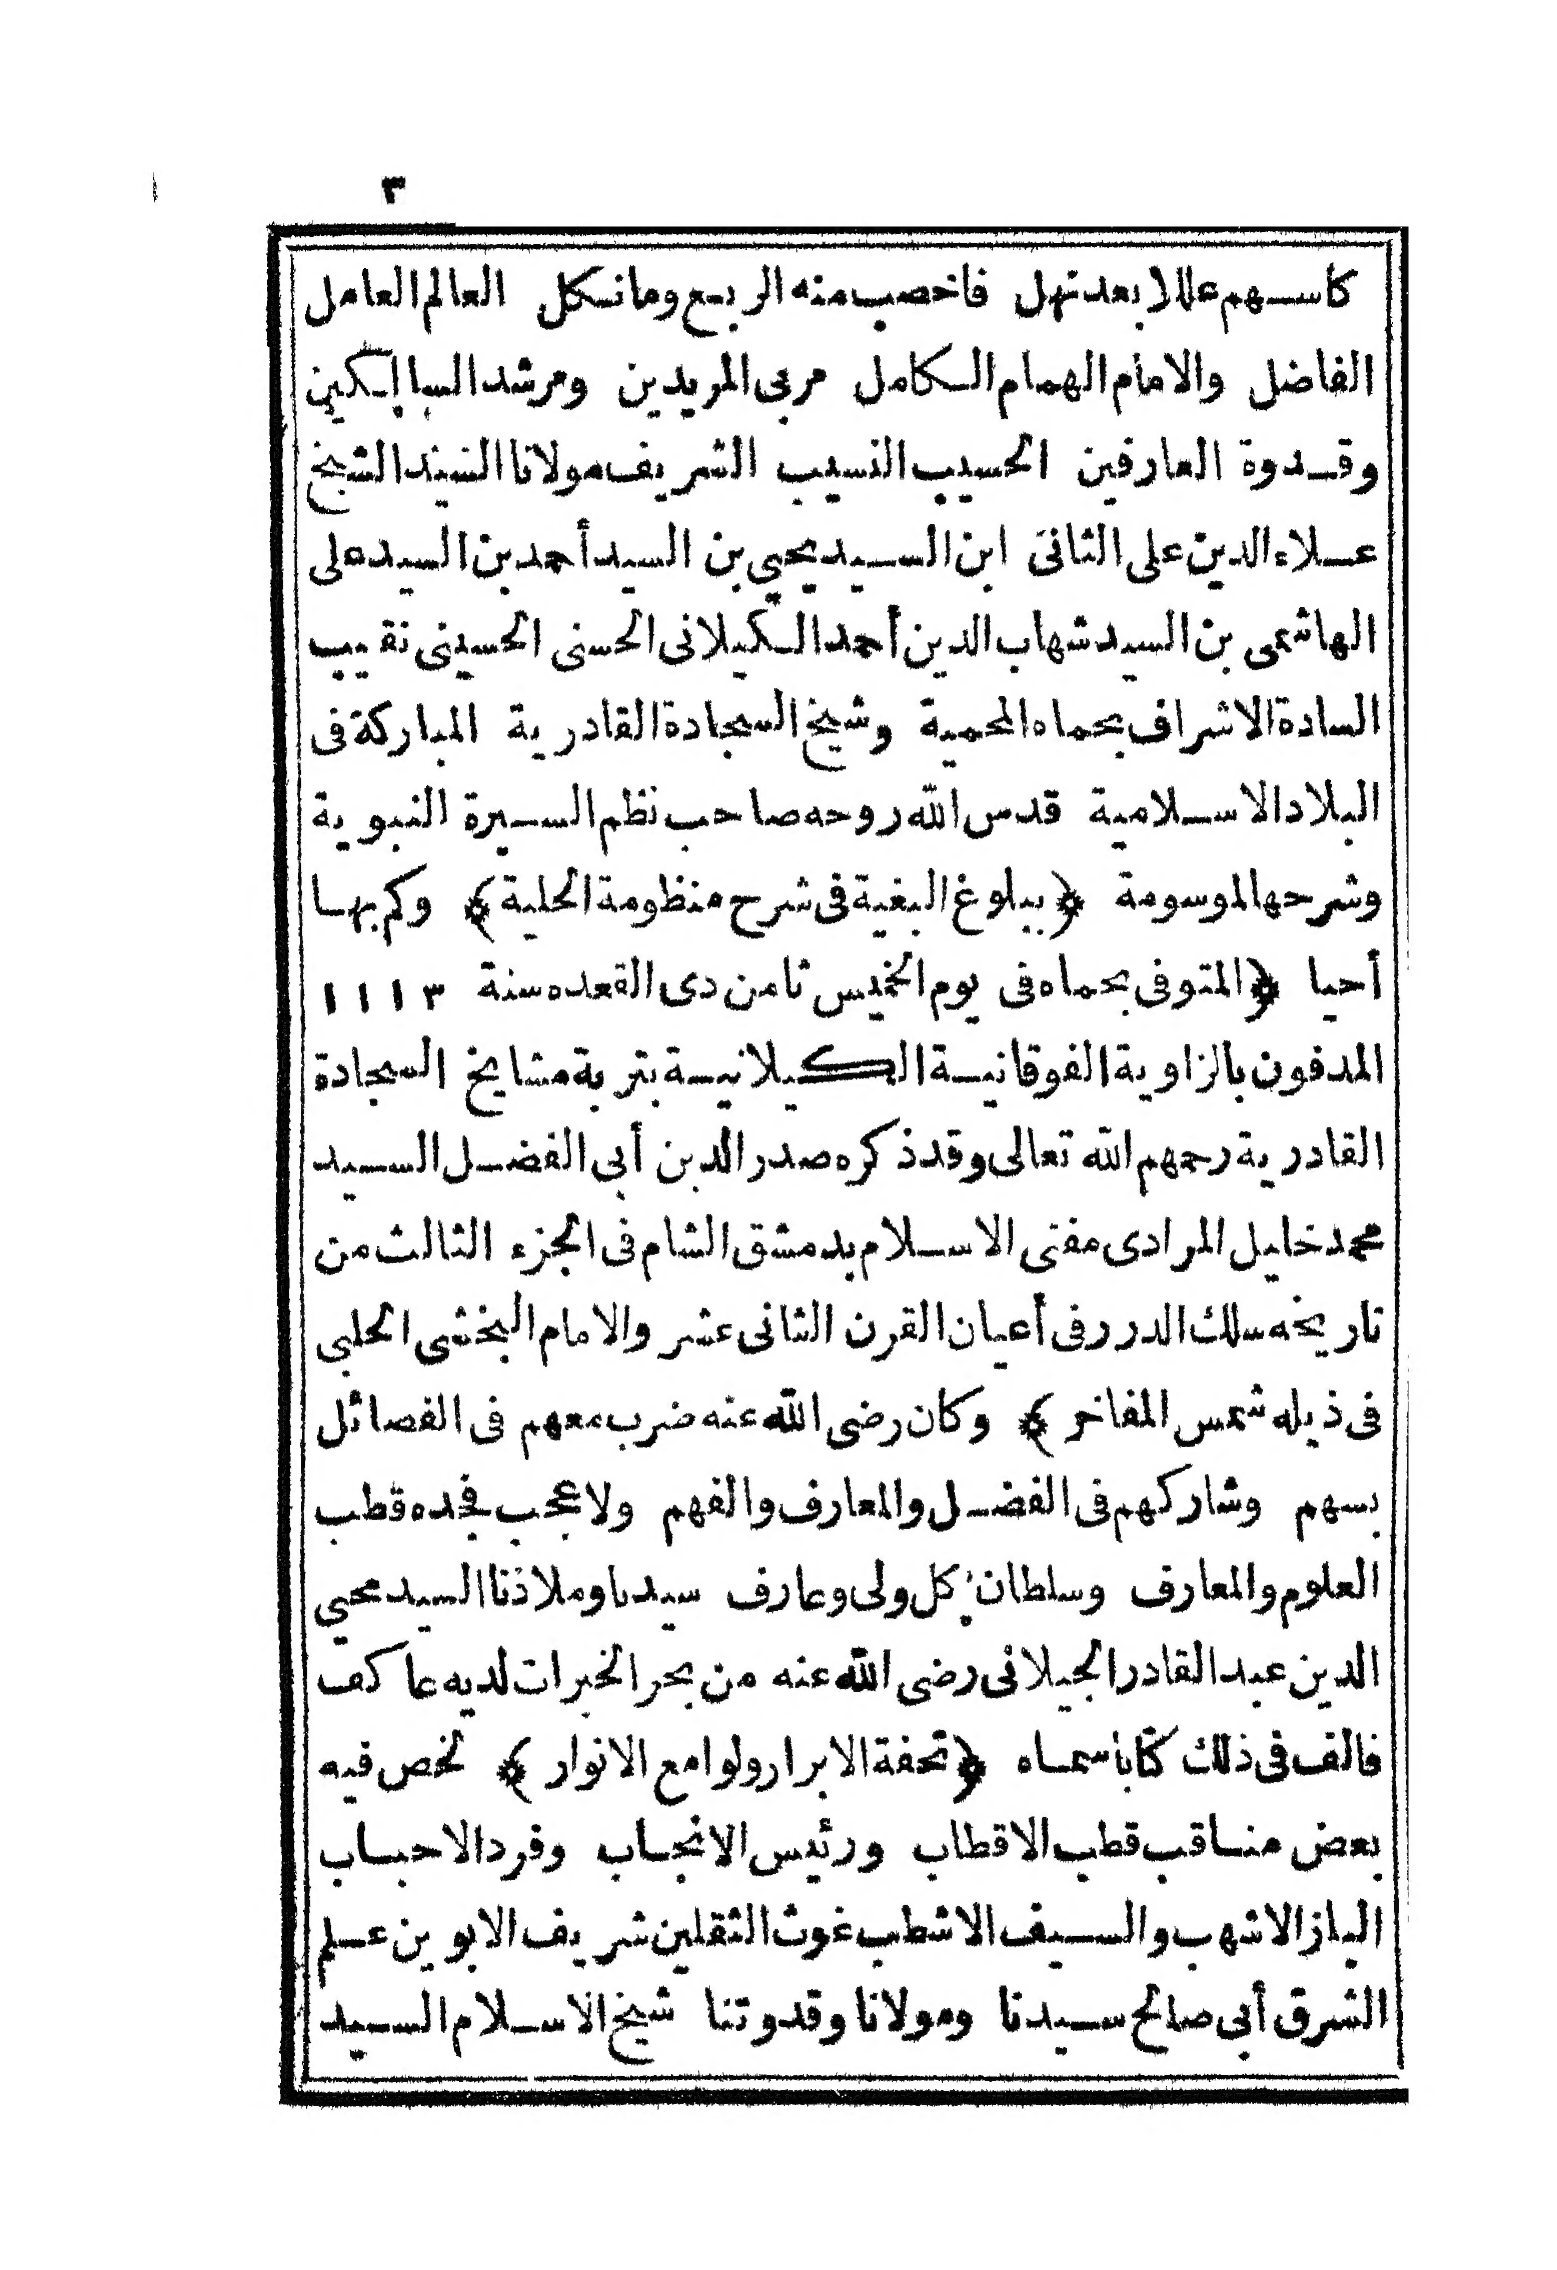 ٣
كأسهم عللا بعد نهل فاخصب منه الربع وما نكل العالم العامل
الفاضل والامام الهمام الكامل مربى المريدين ومرشد السالكين
وقدوة العارفين الحسيب النسيب الشريف مولانا السيد الشيخ
علاء الدين على الثانى ابن السيد يحيى بن السيد أحمد بن السيد على
الهاشمى بن السيد شهاب الدين أحمد الكيلانى الحسنى الحسينى نقيب
السادة الاشراف بحماه المحمية وشيخ السجادة القادرية المباركة فى
البلاد الاسلامية قدس الله روحه صاحب نظم السيرة النبوية
وشرحها الموسومة ﴿ ببلوغ البغية فى شرح منظومة الحلية ﴾ وكم بها
أحيا ﴿ المتوفى بحماه فى يوم الخميس ثامن دى القعده سنة ١١١٣
المدفون بالزاوية الفوقانية الكيلانية بتربة مشايخ السجادة
القادرية رحمهم الله تعالى وقد ذكره صدر الدين أبى الفضل السيد
محمد خليل المرادى مفتى الاسلام بدمشق الشام فى الجزء الثالث من
تاريخه سلك الدرر فى أعيان القرن الثانى عشر والامام البخشى الحلبى
فى ذيله شمس المفاخر ﴾ وكان رضى الله عنه ضرب معهم فى الفصائل
بسهم وشاركهم فى الفضل والمعارف والفهم ولا عجب فجده قطب
العلوم والمعارف وسلطان كل ولى وعارف سيدنا وملاذنا السيد محيى
الدين عبد القادر الجيلانى رضى الله عنه من بحر الخيرات لديه عاكف
فالف فى ذلك كتابا سماه ﴿ تحفة الابرار ولوامع الانوار ﴾ لخص فيه
بعض مناقب قطب الاقطاب ورئيس الانجاب وفرد الاحباب
الباز الاشهب والسيف الاشطب غوث الثقلين شريف الابوين علم
الشرق أبى صالح سيدنا ومولانا وقدوتنا شيخ الاسلام السيد